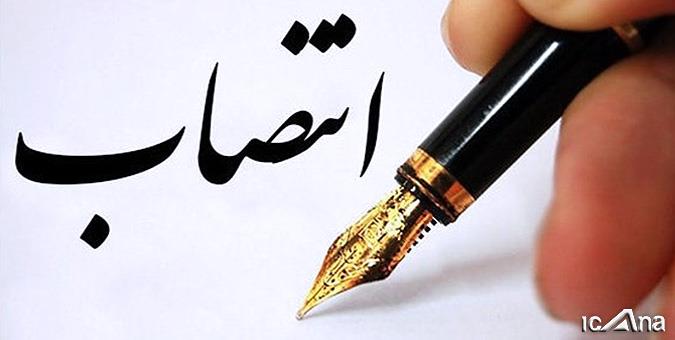 انتصاب
ıcana